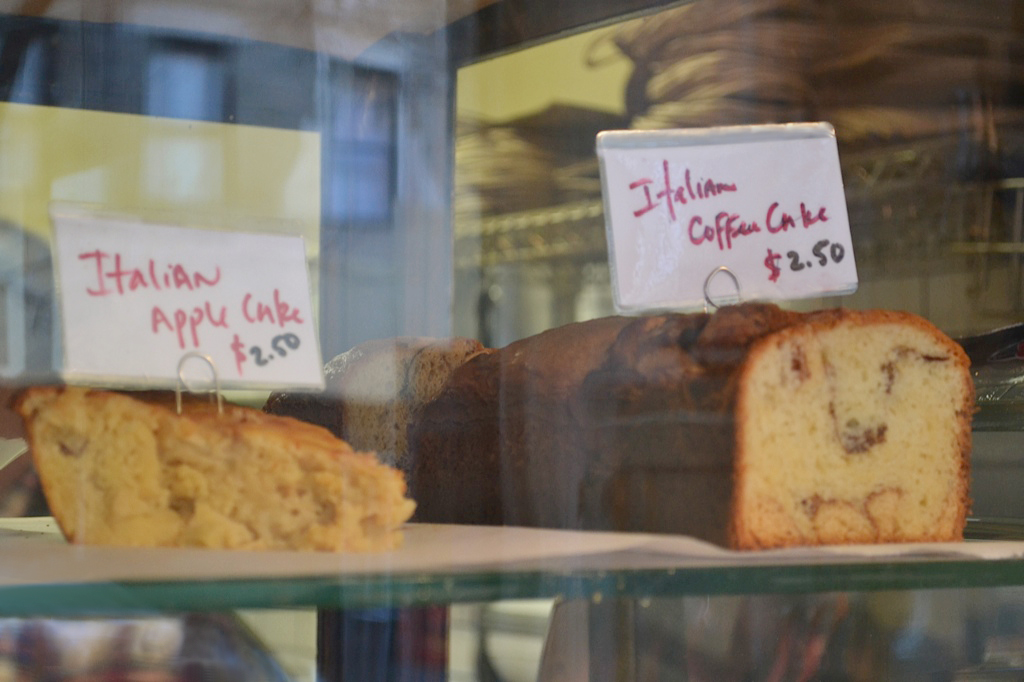 Italian
Apple Cake
$2.50
Italian
Coffee Cake
$2.50